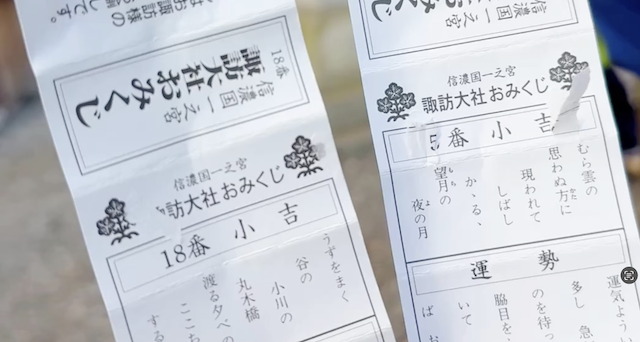 18番
信濃国一之宮
諏訪大社おみくじ
信濃国一之宮
訪大社おみくじ
18番 小吉
うずをまく
谷の
小川の
丸木橋
渡る夕べの
ここち
する
信濃国一之宮
諏訪大社おみくじ
5番 小吉
むら雲の
思わぬ方に
かた
現われて
しばし
かゝる
望月の
もち
夜の月
よ
運勢
運気ようい
多し 急
のを待っ
脇目を
いて
ば お